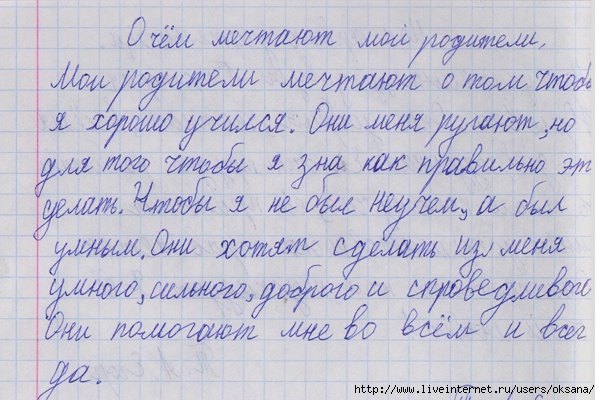 О чём мечтают мои родители.
Мои родители мечтают о том чтобы
я хорошо учился. Они меня ругают, но
для того чтобы я зна как правильно эт
делать. Чтобы я не был неучем, а был
умным. Они хотят сделать из меня
умного, сильного, доброго и спроведливого
Они помогают мне во всём и всег
да.
http://www.liveinternet.ru/users/oksana/